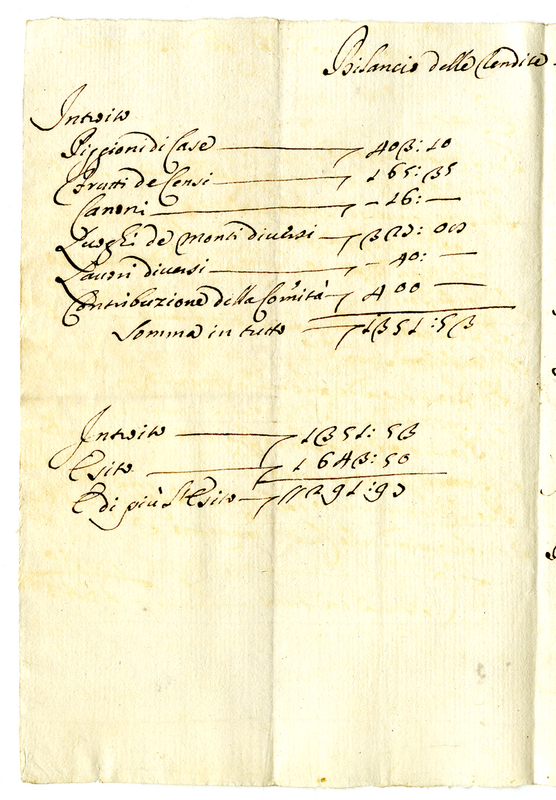 Bilancio delle Rendite
Introito
Piggioni di Case — 403:10
Frutti de Censi — 165:35
Canoni — – 16: —
Luoghi de Monti diversi — 327: 08
Lavori diversi — – 40: —
Contribuzione della Com̃ità — 400 —
Somma in tutto — 1351:53
Introito — 1351:53
Esito — 1643:50
E di più l'Esito — 291:97